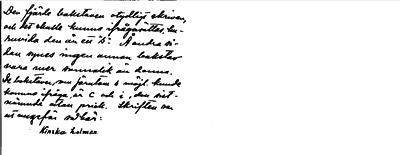 Den fjärde bokstaven otydligt skriven,
och det skulle kunna ifrågasättas, hu-
ruvida den är ett "s". Å andra si-
dan synes ingen annan bokstav
vara mer sannolik än denna.
De bokstäver, som förutom s möjl. kunde
komma ifråga, är c och i, den sist-
nämnda utan prick. Skriften ser
ut ungefär så här:
Kinska